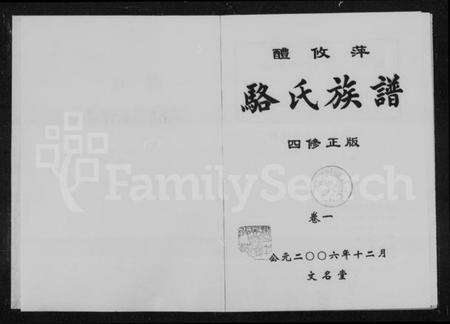 醴攸萍
駱氏族譜
四修正版
卷一
公元二〇〇六年十二月
文名堂
FamilySearch